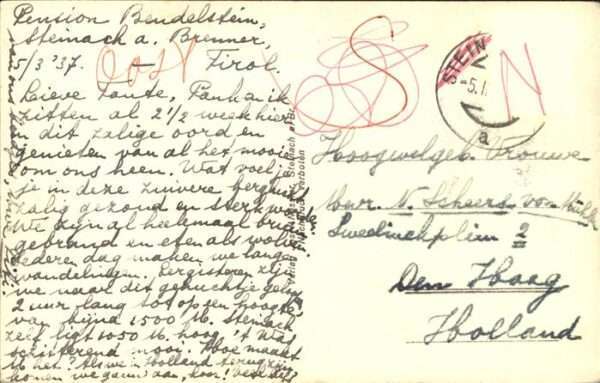 Pension Bendelstein,
Steinach a. Brenner,
5/3 '37. — Tirol.
Oost
Lieve Tante, Pank en ik
zitten al 2 1/2 week hier
in dit zalige oord en
genieten van al het mooi
om ons heen. Wat voel
je in deze zuivere berglucht
zalig gezond en sterk
We zijn al helemaal bruin
gebrand en even als
iederen dag maken we lange
wandelingen. Eergisteren zijn
we naar dit gehuchtje gelopen
2 uur lang tot op een hoogte
van bijna 1500 M. Steinach
zelf ligt 1050 M. hoog. 't Was
schitterend mooi. Hoe maakt
U het? Als we in Holland terug zijn
komen we gauw aan, hoor!
Steinach a/Br.
verboten
S
N
STEIN
-5.
a
Hoogwelgeb. Vrouwe
N. Scheers von
2
Den Haag
Holland